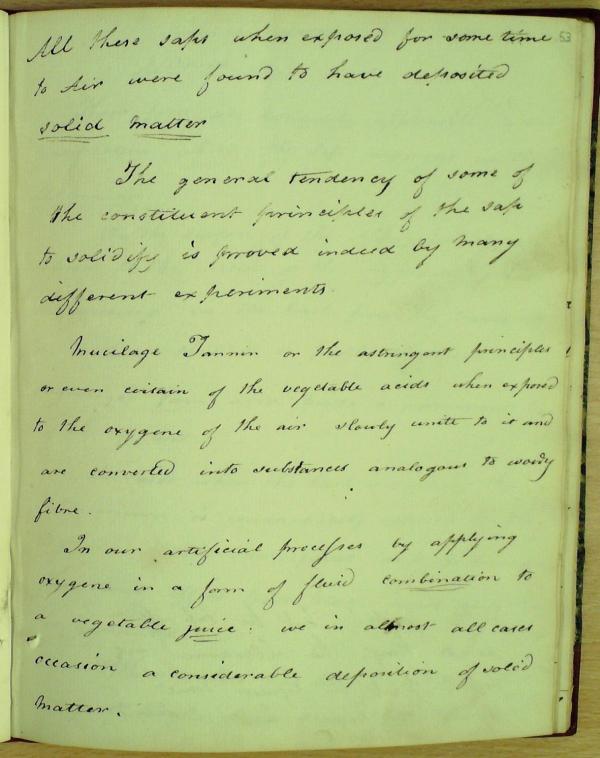 53
All these saps when exposed for some time
to Air were found to have deposited
solid matter
The general tendency of some of
the constituent principles of the sap
to solidify is proved indeed by many
different experiments.
Mucilage Tannin or the astringent principles
or even certain of the vegetable acids when exposed
to the oxygene of the air slowly unite to it and
are converted into substances analogous to woody
fibre.
In our artificial processes by applying
oxygene in a form of fluid combination to
a vegetable juice. we in almost all cases
occasion a considerable deposition of solid
matter.